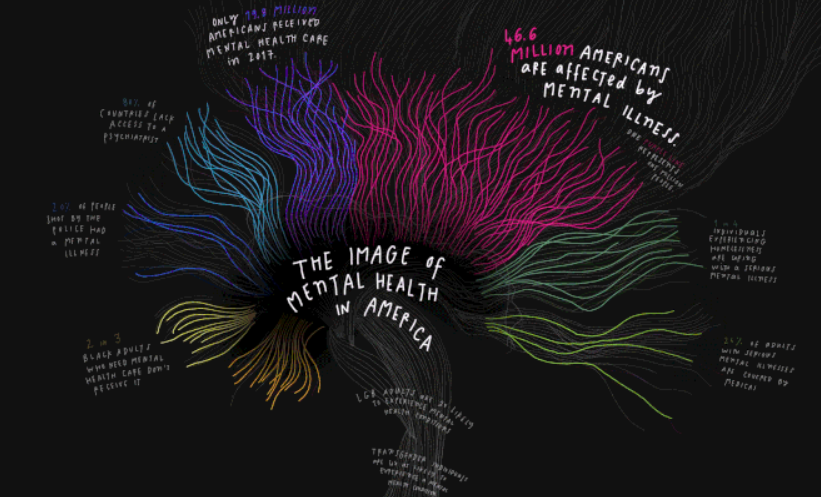 ONLY 19.8 MILLION
AMERICANS RECEIVED
MENTAL HEALTH CARE
in 2017.
46.6
MILLION AMERICANS
ARE AFFECTED by
MENTAL ILLNESS.
ONE
REPRESENTS
ONE MILLION
OF
COUNTRIES LACK
ACCESS TO A
PSYCHIATRIST
OF PEOPLE
SHOT BY THE
POLICE HAD
A MENTAL
ILLNESS
INDIVIDUALS
EXPERIENCING
HOMELESSNESS
ARE LIVING
WITH A SERIOUS
MENTAL ILLNESS
THE IMAGE OF
MENTAL HEALTH
IN AMERICA
2 in 3
BLACK ADULTS
WHO NEED MENTAL
HEALTH CARE DON'T
RECEIVE IT
OF ADULTS
WITH SERIOUS
MENTAL ILLNESSES
ARE COVERED BY
MEDICAID
LGB ADULTS ARE LIKELY
TO EXPERIENCE MENTAL
HEALTH CONDITIONS
TRANSGENDER INDIVIDUALS
ARE AS LIKELY TO
EXPERIENCE A MENTAL
HEALTH CONDITION